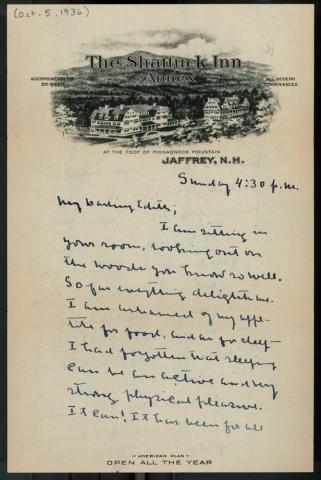 (Oct. 5, 1936)
The Shattuck Inn
Annex
ACCOMMODATION FOR
200 GUESTS
ALL MODERN
CONVENIENCES
AT THE FOOT OF MONADNOCK MOUNTAIN
JAFFREY, N.H.
Sunday 4:30 p.m.
My Darling Edith;
I am sitting in
your room, looking out on
the woods you know so well.
So far everything delights me.
I am ashamed of my appe-
tite for food, and as for sleep
I had forgotten that sleeping
can be an active and very
strong physical pleasure.
It can! It has been for all
- AMERICAN PLAN -
OPEN ALL THE YEAR